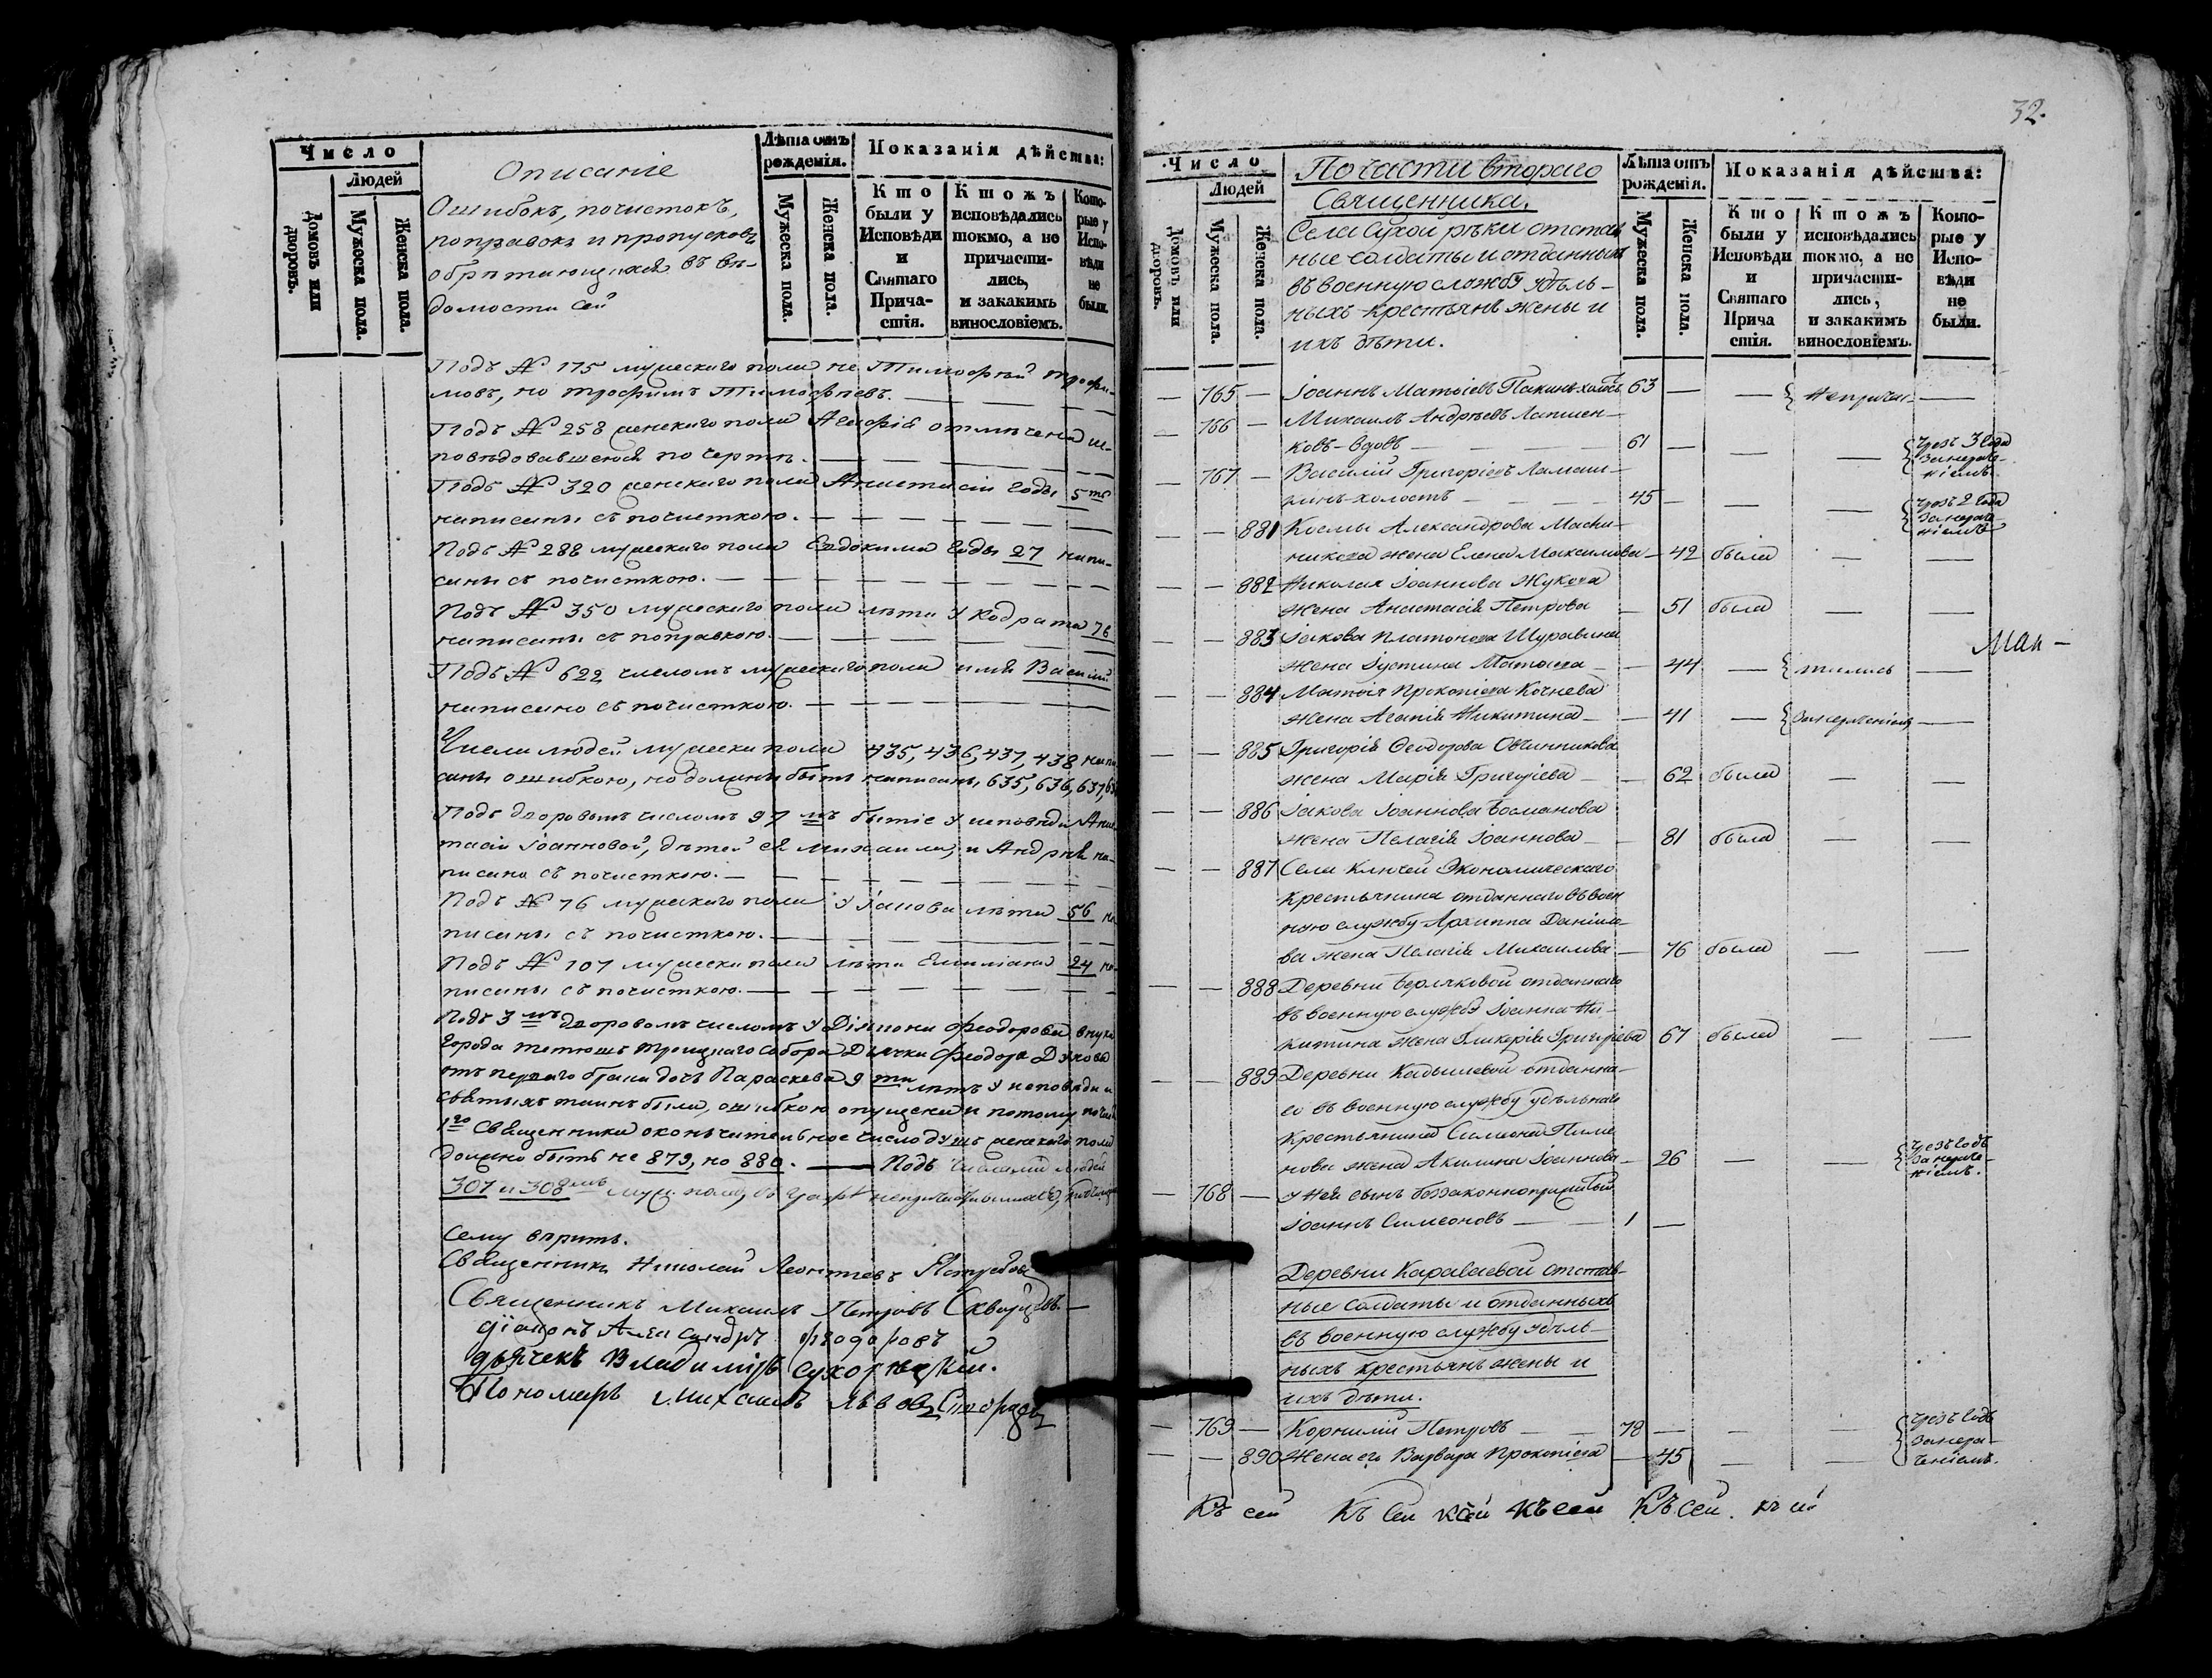 Число
Людей
Домовъ или дворовъ.
Мужеска пола.
Женска пола.
Описаніе
Ошибокъ, почистокъ,
поправокъ и пропусковъ
обрѣтающихся въ вѣ-
домости сей
Лѣта отъ рожденія.
Мужеска пола.
Женска пола.
Показанія дѣйства:
Кто были у Исповѣди и Святаго Причастія.
Ктожъ исповѣдались токмо, а не причастились, и закакимъ винословіемъ.
Которые у Исповѣди не были.
Подъ № 175 мужескаго пола не Тимофѣй Трофи-
мовъ, но Трофимъ Тимофѣевъ.
Подъ № 258 женскаго пола отмѣчена ис-
повѣдовавшеюся по чертѣ.
Подъ № 320 женскаго пола Анастасіи годы 5ть
написаны съ почисткою.
Подъ № 288 мужескаго пола Евдокима годы 27 напи-
саны съ почисткою.
Подъ № 350 мужескаго пола лѣта у Кодрата 76
написаны съ поправкою.
Подъ № 622 числомъ мужескаго пола имя Василій
написано съ почисткою.
Числа людей мужеска пола 435, 436, 437, 438 напи
саны ошибкою, но должны быть написаны, 635, 636, 637, 638
Подъ дворовымъ числомъ 97мъ бытіе у исповѣди Анас
тасіи Іоанновой, дѣтей ея Михаила, и Андрея на-
писано съ почисткою.
Подъ № 76 мужескаго пола у Іакова лѣта 56 на
писаны съ почисткою.
Подъ № 107 мужеска пола лѣта Емиліана 24 на-
писаны съ почисткою.
Подъ 3мъ дворовомъ числомъ у Діакона Феодорова внука
города Тетюшъ Троицкаго Собора Дьячка Феодора
отъ перваго брака дочь Параскева 9ти лѣтъ у исповѣди и
святыхъ таинъ была, ошибкою опущена и потому по части
1го Священника окончательное число душъ женскаго пола
должно быть не 879, но 880. Подъ числами людей
307 и 308мъ муж. пола, въ графѣ
Сему вѣрить.
Священникъ Николай Леонтьевъ
Священникъ Михаилъ Петровъ Скворцовъ.
діаконъ Александръ феодоровъ
дьячекъ Владимиръ Сухорѣцкій.
Пономарь Михаилъ Львовъ
32.
Число
Людей
Домовъ или дворовъ.
Мужеска пола.
Женска пола.
По части втораго
Священника.
Села Сухой рѣки отстав
ные солдаты и отданныхъ
въ военную службу удѣль-
ныхъ крестьянъ жены и
ихъ дѣти.
Лѣта отъ рожденія.
Мужеска пола.
Женска пола.
Показанія дѣйства:
Кто были у Исповѣди и Святаго Прича стія.
Ктожъ исповѣдались токмо, а не причастились, и закакимъ винословіемъ.
Которые у Исповѣди не были.
— 765 — Іоаннъ Матѳіевъ холостъ 63 — — Непричас- —
— 766 — Михаилъ Андрѣевъ Лапшен-
ковъ - вдовъ 61 — — — Чрезъ 3 года за нераче-ніемъ.
— 767 — Василій Григоріевъ
холостъ 45 — — — Чрезъ 2 года за нераче-ніемъ
— — 881 Космы Александрова
жена Елена Максимова — 42 была — —
— — 882 Николая Іоаннова Жукова
жена Анастасія Петрова — 51 была — —
— — 883 Іакова Платонова Шуравина
жена Іустина — 44 — тились —
Мал -
— — 884 Матѳія Прокопіева Кочнева
жена Агапія Никитина — 41 — за нераченіемъ —
— — 885 Григорія Ѳеодорова Овчинникова
жена Марія Григоріева — 62 была — —
— — 886 Іакова Іоаннова Босманова
жена Пелагія Іоаннова — 81 была — —
— — 887 Села Ключей Экономическаго
крестьянина отданнаго въ воен
ную службу Архиппа Даніило-
ва жена Пелагія Михаилова — 76 была — —
— — 888 Деревни Беряковой отданнаго
въ военную службу Іоанна Ни-
китина жена Гликерія Григоріева 67 была — —
— — 889 Деревни Кадышевой отданна-
го въ военную службу удѣльнаго
крестьянина Симеона Пиме
нова жена Акилина Іоаннова — 26 — — Чрезъ годъ за нераче-ніемъ.
— 768 — У нея сынъ беззаконноприжитый
Іоаннъ Симеоновъ 1 —
Деревни Караваевой отстав-
ные солдаты и отданныхъ
въ военную службу удѣль-
ныхъ крестьянъ жены и
ихъ дѣти.
— 769 — Корнилій Петровъ 78 — — — Чрезъ годъ за нера-ченіемъ.
— — 890 Жена его Варвара Прокопіева — 45 — —
Къ сей Къ сей къ сей къ сей Къ сей.